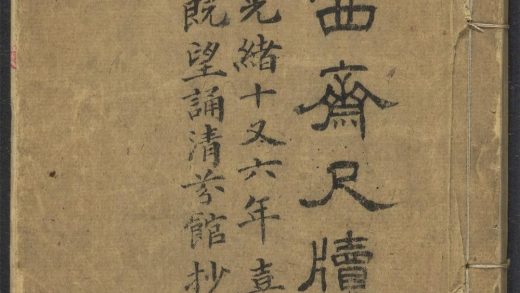 西齋尺牘
光緒十又六年喜
既望誦清芬館抄